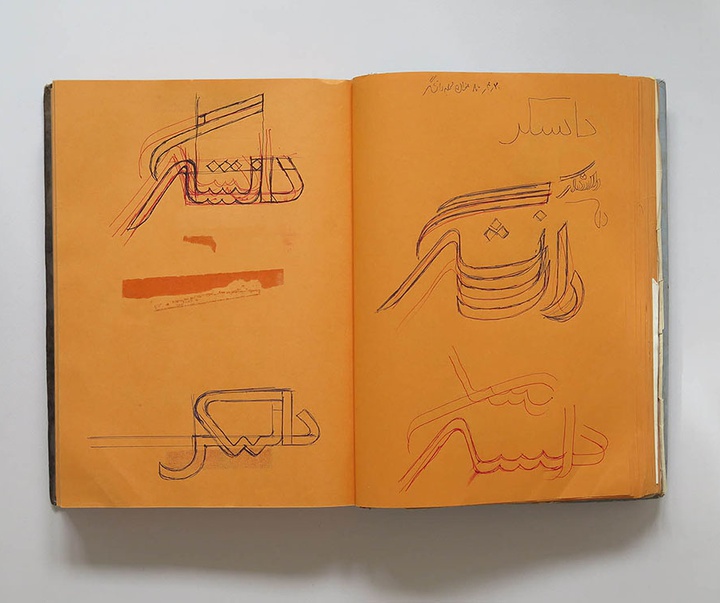 دانشگر
دانشگر
دانشگر
دانشگر
دانشگر
دانشگر